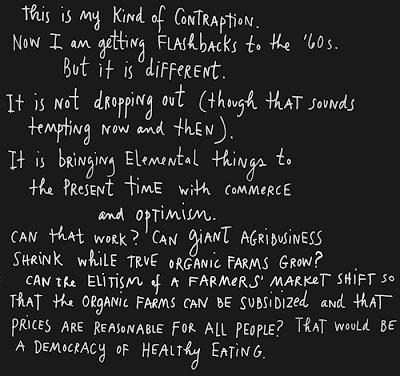 This is my kind of contraption.
Now I am getting flashbacks to the '60s.
But it is different.
It is not dropping out (though that sounds
tempting now and then).
It is bringing elemental things to
the present time with commerce
and optimism.
Can that work? Can giant agribusiness
shrink while true organic farms grow?
Can the elitism of a farmers' market shift so
that the organic farms can be subsidized and that
prices are reasonable for all people? That would be
a democracy of healthy eating.